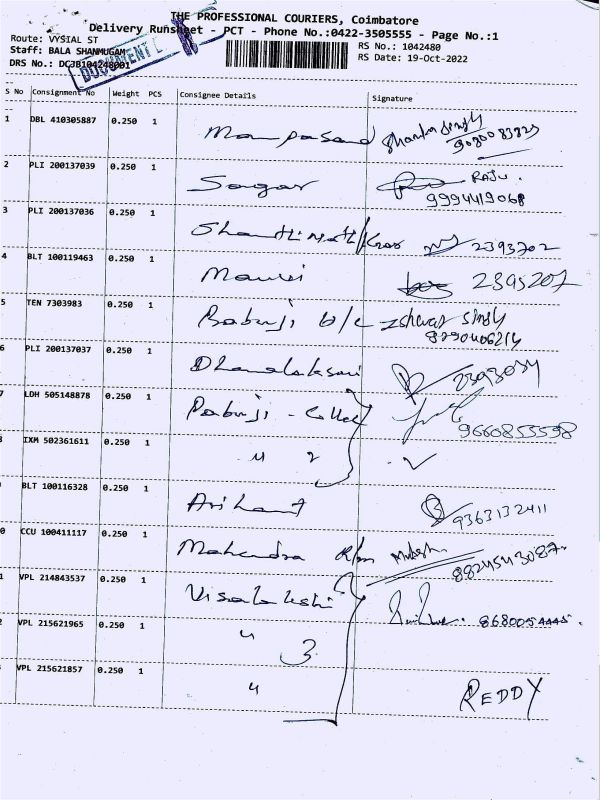 THE PROFESSIONAL COURIERS, Coimbatore
Delivery Runsheet - PCT - Phone No.:0422-3505555 - Page No.:1
Route: VYSIAL ST
RS No.: 1042480
Staff: BALA SHANMUGAM
RS Date: 19-Oct-2022
DRS No.: DCJB104248001
DOCUMENT
S No Consignment No Weight PCS Consignee Details Signature
1 DBL 410305887 0.250 1 Manpasand
2 PLI 200137039 0.250 1 Sagar RAJU.
9994419068
3 PLI 200137036 0.250 1 2393702
4 BLT 100119463 0.250 1 2395207
5 TEN 7303983 0.250 1 Babuji Singh
6 PLI 200137037 0.250 1
7 LDH 505148878 0.250 1 Babuji - 9660853598
IXM 502361611 0.250 1 " 2
BLT 100116328 0.250 1 Arihant 9363132411
0 CCU 100411117 0.250 1 Mahendra
1 VPL 214843537 0.250 1 Visalakshi 8680054445.
2 VPL 215621965 0.250 1 "
3
VPL 215621857 0.250 1 " REDDY